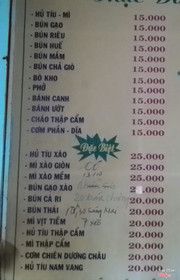 - HỦ TÍU - MÌ 15,000
- BÚN GẠO 15,000
- BÚN RIÊU 15,000
- BÚN HUẾ 15,000
- BÚN MẮM 15,000
- BÚN CHẢ GIÒ 15,000
- BÒ KHO 15,000
- PHỞ 15,000
- BÁNH CANH 15,000
- BÁNH ƯỚT 15,000
- CHÁO THẬP CẨM 15,000
- CƠM PHẦN - DĨA 15,000
Đặc Biệt
- HỦ TÍU XÀO 25,000
- MÌ XÀO GIÒN 25,000
- MÌ XÀO MỀM 25,000
- BÚN GẠO XÀO 25,000
- BÚN CÀ RI 20,000
- BÚN THÁI 20,000
- MÌ VỊT TIỀM 20,000
- HỦ TÍU THẬP CẨM 20,000
- MÌ THẬP CẨM 20,000
- CƠM CHIÊN DƯƠNG CHÂU 20,000
- HỦ TÍU NAM VANG 20,000